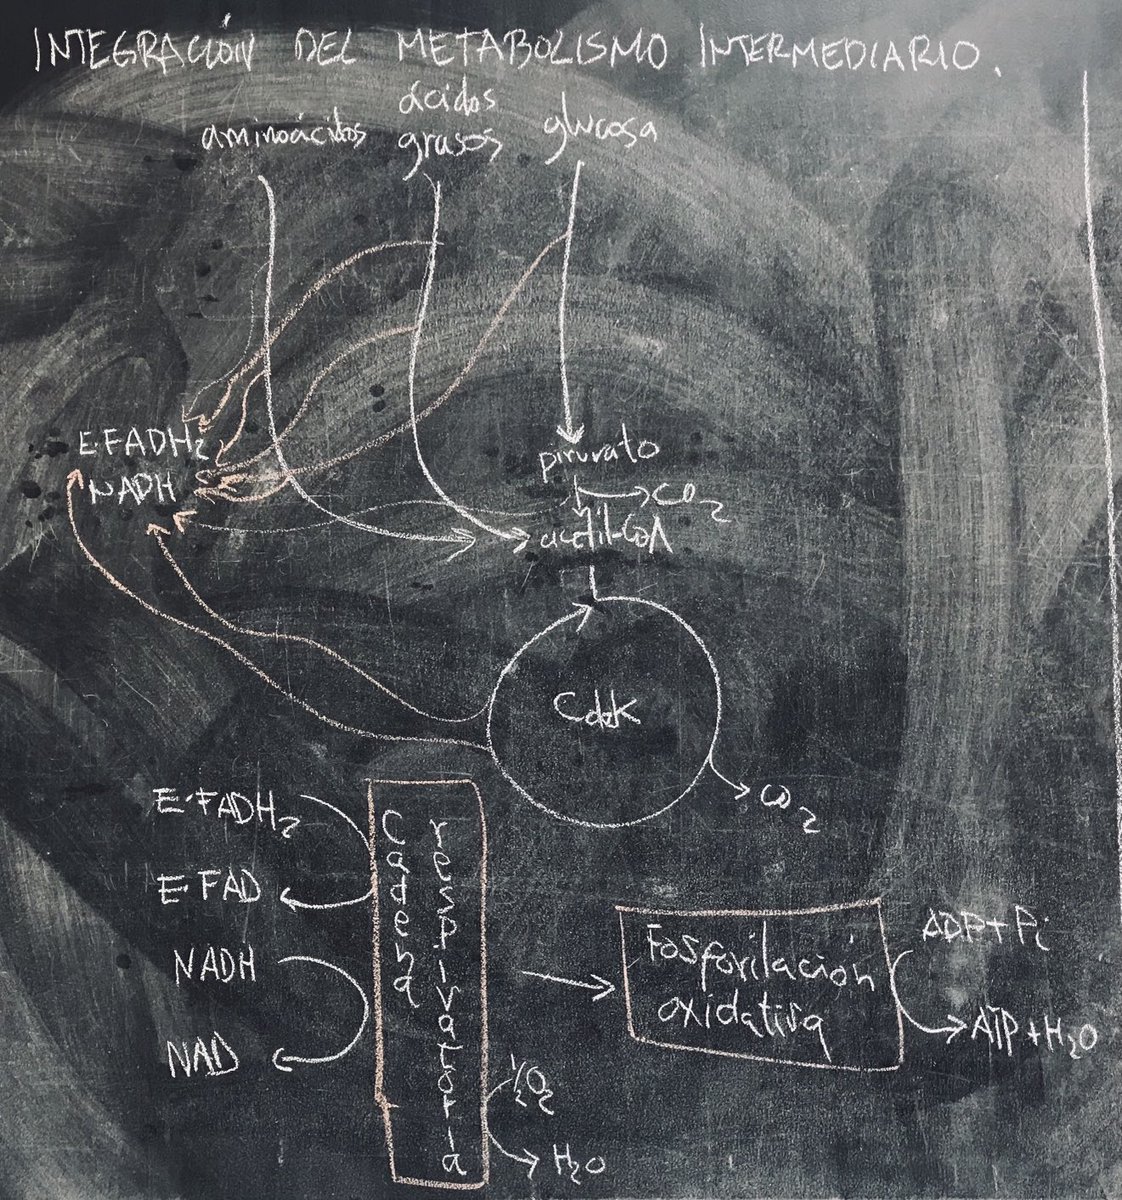 INTEGRACIÓN DEL METABOLISMO INTERMEDIARIO.
aminoácidos
ácidos
grasos
glucosa
E·FADH₂
NADH
piruvato
CO₂
acetil-CoA
CdeK
CO₂
E·FADH₂
E·FAD
NADH
NAD
Cadena
respiratoria
½O₂
H₂O
Fosforilación
oxidativa
ADP+Pi
ATP+H₂O